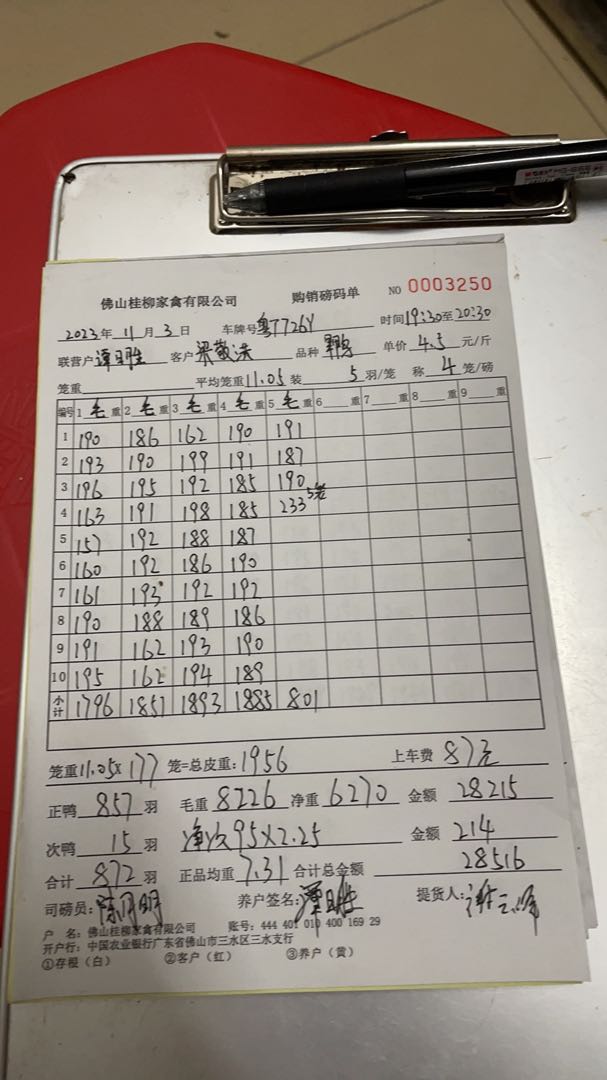 佛山桂柳家禽有限公司 购销磅码单 NO 0003250
2023年 11月 3日 车牌号 粤T7726Y 时间19:30至20:30
联营户 谭日胜 客户 梁敬洪 品种 鸭 单价 4.5 元/斤
笼重 平均笼重11.05 装 5 羽/笼 称 4 笼/磅
编号 1 毛 重 2 毛 重 3 毛 重 4 毛 重 5 毛 重 6 重 7 重 8 重 9 重
1 190 186 162 190 191
2 193 190 199 191 187
3 196 195 192 185 190
4 163 191 198 185 233 5笼
5 157 192 188 187
6 160 192 186 190
7 161 193 192 192
8 190 188 189 186
9 191 162 193 190
10 195 162 194 189
小计 1796 1851 1893 1885 801
笼重11.05×177 笼=总皮重:1956 上车费 87元
正鸭 857 羽 毛重 8226 净重 6270 金额 28215
次鸭 15 羽 净次95×2.25 金额 214
合计 872 羽 正品均重 7.31 合计总金额 28516
司磅员: 养户签名:谭日胜 提货人:
户 名: 佛山桂柳家禽有限公司 账号: 444 401 010 400 169 29
开户行: 中国农业银行广东省佛山市三水区三水支行
①存根（白） ②客户（红） ③养户（黄）